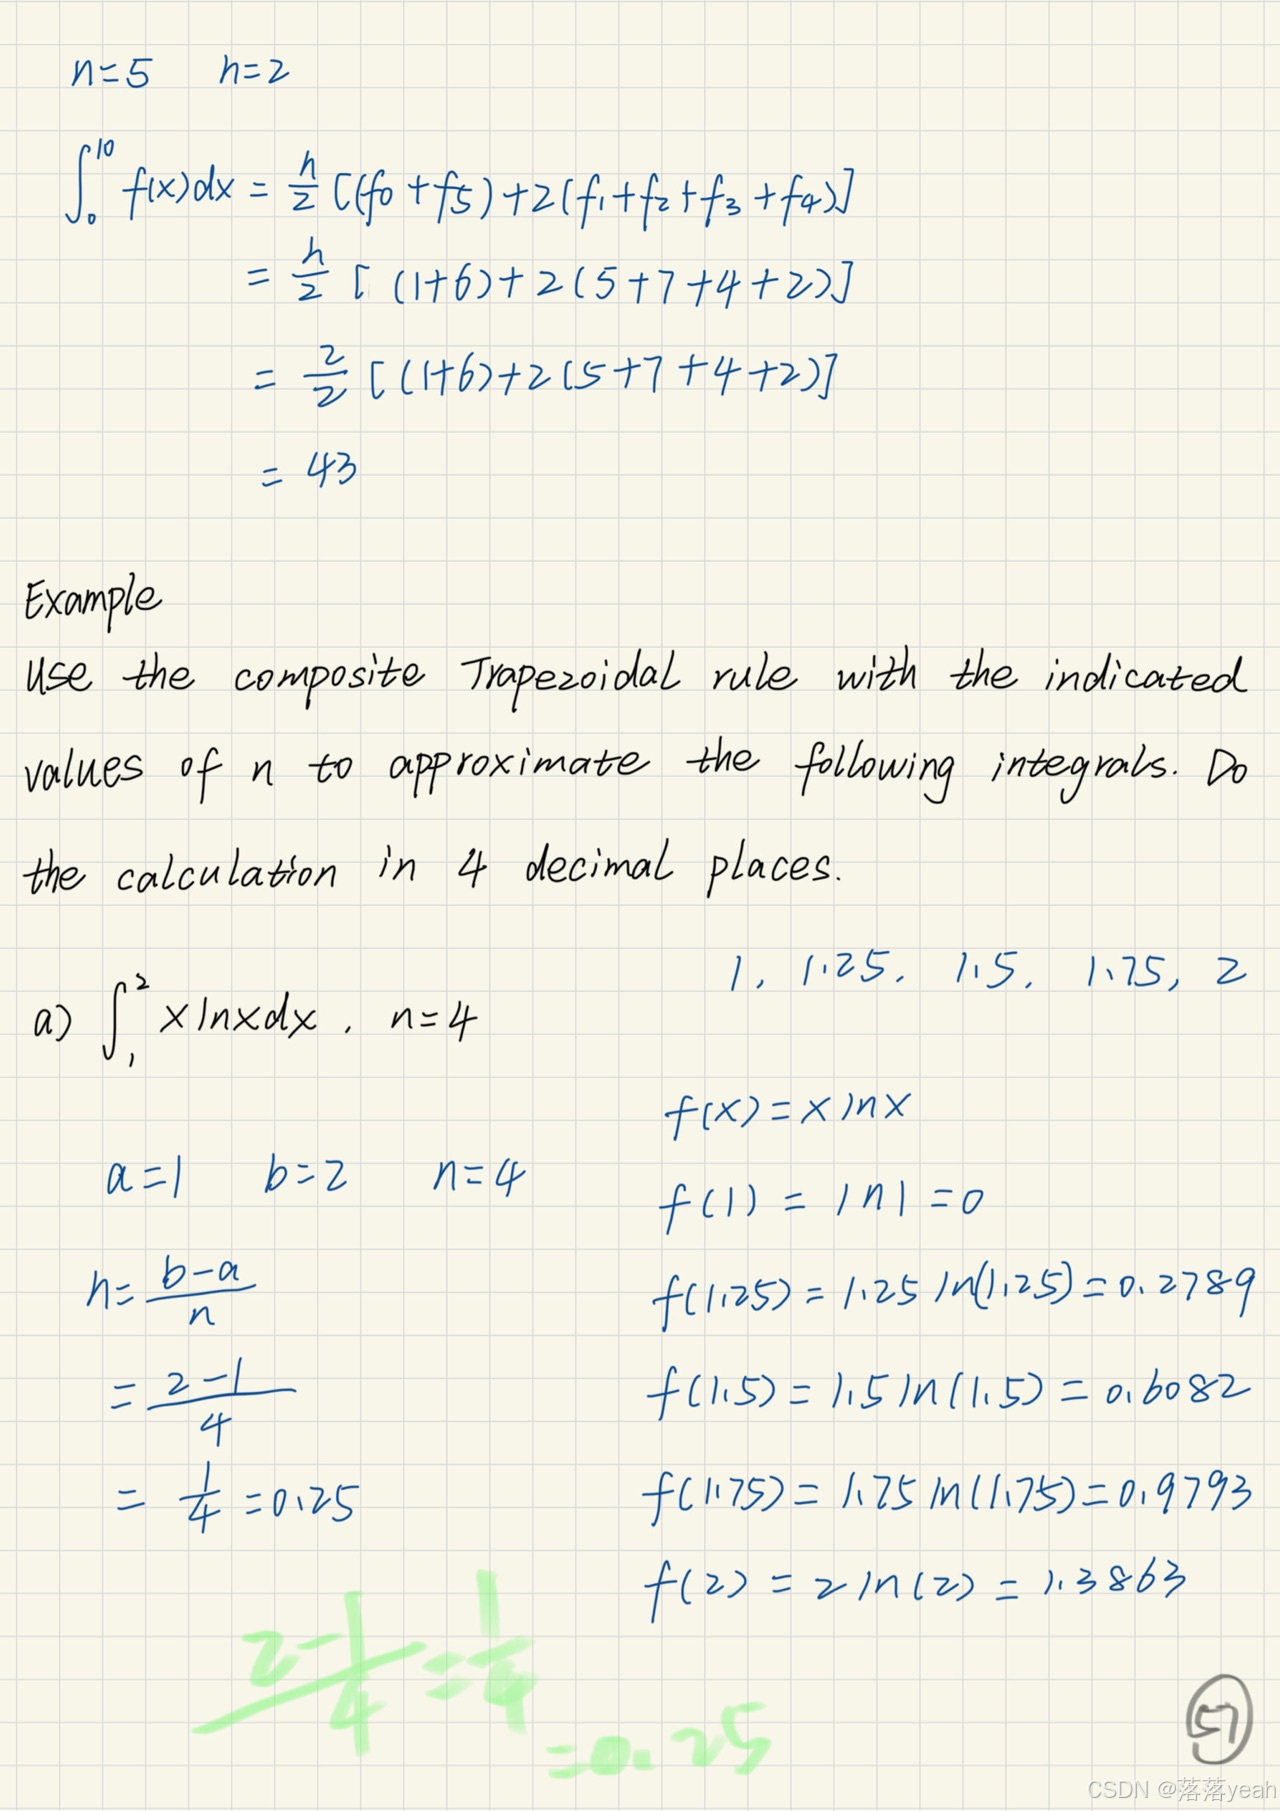 n=5 h=2
∫₀¹⁰ f(x)dx = h/2 [(f0+f5)+2(f1+f2+f3+f4)]
= h/2 [(1+6)+2(5+7+4+2)]
= 2/2 [(1+6)+2(5+7+4+2)]
= 43
Example
Use the composite Trapezoidal rule with the indicated
values of n to approximate the following integrals. Do
the calculation in 4 decimal places.
1, 1.25, 1.5, 1.75, 2
a) ∫₁² x lnx dx, n=4
a=1 b=2 n=4
h = (b-a)/n
= (2-1)/4
= 1/4 = 0.25
f(x) = x lnx
f(1) = ln1 = 0
f(1.25) = 1.25 ln(1.25) = 0.2789
f(1.5) = 1.5 ln(1.5) = 0.6082
f(1.75) = 1.75 ln(1.75) = 0.9793
f(2) = 2 ln(2) = 1.3863
(2-1)/4 = 1/4
= 0.25
CSDN @落落yeah